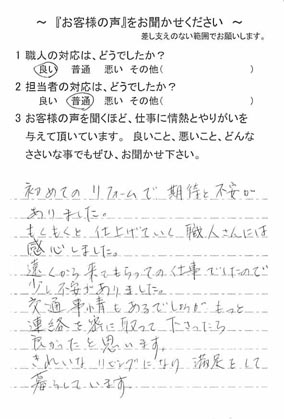 ～ 『お客様の声』をお聞かせください ～
差し支えのない範囲でお願いします。
1 職人の対応は、どうでしたか？
良い 普通 悪い その他( )
2 担当者の対応は、どうでしたか？
良い 普通 悪い その他( )
3 お客様の声を聞くほど、仕事に情熱とやりがいを
与えて頂いています。 良いこと、悪いこと、どんな
ささいな事でもぜひ、お聞かせ下さい。
初めてのリフォームで期待と不安が
ありました。
もくもくと仕上げていく職人さんには
感心しました。
遠くから来てもらっての仕事でしたので
少し不安がありました。
交通事情もあるでしょうがもっと
連絡を密に取って下さったら
良かったと思います。
きれいなリビングになり満足をして
暮らしています。